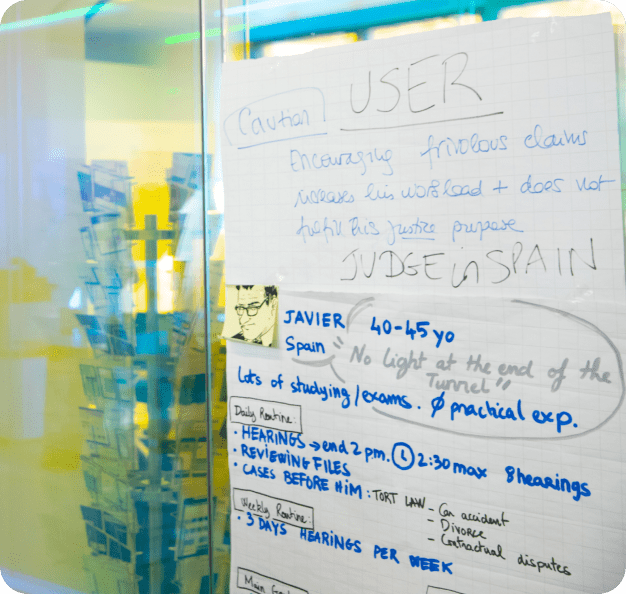 USER
Caution
Encouraging frivolous claims
increases his workload + does not
fulfill his justice purpose
JUDGE in SPAIN
JAVIER 40-45 yo
Spain "No Light at the end of the
Tunnel"
Lots of studying/exams. Ø practical exp.
Daily Routine:
· HEARINGS → end 2 pm. 2:30 max 8 hearings
· REVIEWING FILES
· CASES BEFORE HIM: TORT LAW - Car accident
- Divorce
- Contractual disputes
Weekly Routine:
· 3 DAYS HEARINGS PER WEEK
Main